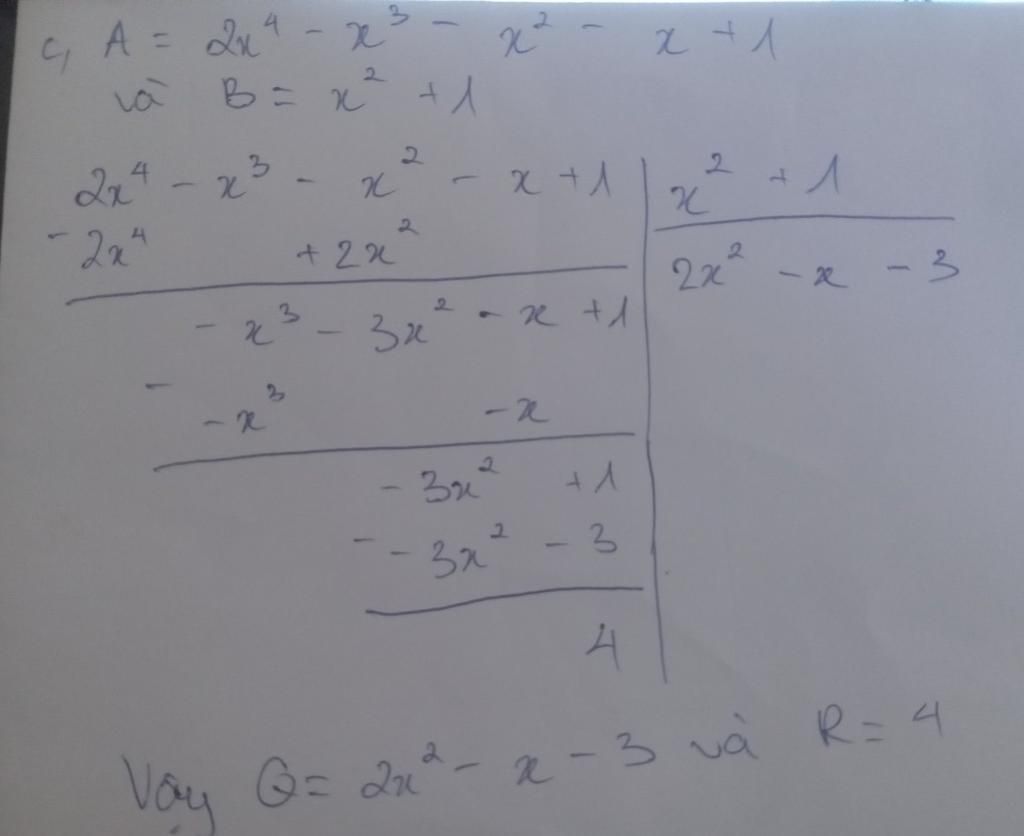 c, A = 2x⁴ - x³ - x² - x + 1
và B = x² + 1
2x⁴ - x³ - x² - x + 1 | x² + 1
- 2x⁴ + 2x² | 2x² - x - 3
- x³ - 3x² - x + 1
-
- x³ - x
- 3x² + 1
- - 3x² - 3
4
Vậy Q = 2x² - x - 3 và R = 4